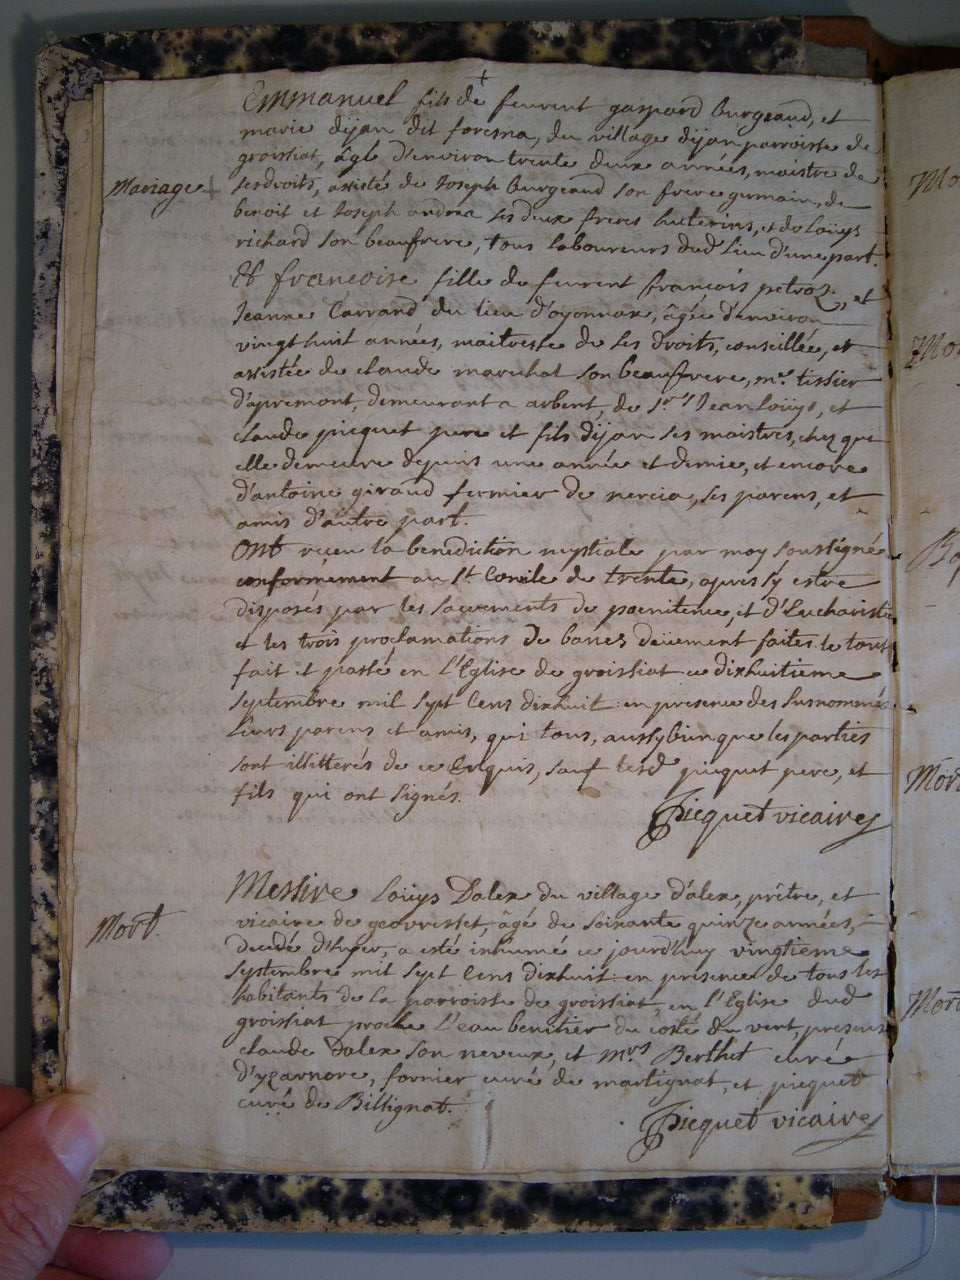 Emmanuel fils de feurent gaspard Burgeaud, et
marie dijan dit foresna, du village dijan parroisse de
groissiat, âgé d'environ trente deux années, maistre de
Mariage +
ses droits, assisté de Joseph burgeaud son frere germain, de
benoit et Joseph andrea ses deux freres huterins, et de Loüys
richard son beaufrere, tous laboureurs dud. lieu d'une part.
Et francoise fille de feurent francois petroz, et
Jeanne Carrand du lieu d'oyonnax, âgée d'environ
vingt huit années, maitresse de ses droits, conseillée, et
assistée de claude marechal son beaufrere, me. tissier
d'apremont, demeurant a arbent, de sr. Jean Loüys, et
claude picquet pere et fils dijan ses maistres, chez qui
elle demeure depuis une année et demie, et encore
d'antoine giraud fermier de nercia, ses parens, et
amis d'autre part.
Ont receu la benediction nuptiale par moy soussigné
conformement au St. Concile de trente, apres s'y estre
disposés par les sacrements de poenitence, et d'Eucharistie
et les trois proclamations de bancs deüement faites. le tout
fait et passé en l'Eglise de groissiat ce dixhuitieme
septembre mil sept cens dixhuit en presence des susnommés
leurs parens et amis, qui tous, aussybien que les parties
sont illitterés de ce enquis, sauf lesd. picquet pere, et
fils qui ont signés.
Picquet vicaire
Messire Loüys Dalex du village d'alex, prêtre, et
Mort.
vicaire de geovrisset, âgé de soixante quinze années,
decedé d'hyer, a esté inhumé ce jourd'huy vingtieme
septembre mil sept cens dixhuit en presence de tous les
habitants de la parroisse de groissiat, en l'Eglise dud.
groissiat proche l'eau benitier du costé du vent, presens
claude Dalex son neveux, et mrs. Berthet curé
d'yzarnore, fornier curé de martignat, et picquet
curé de Billignat.
Picquet vicaire
Mort
Mort